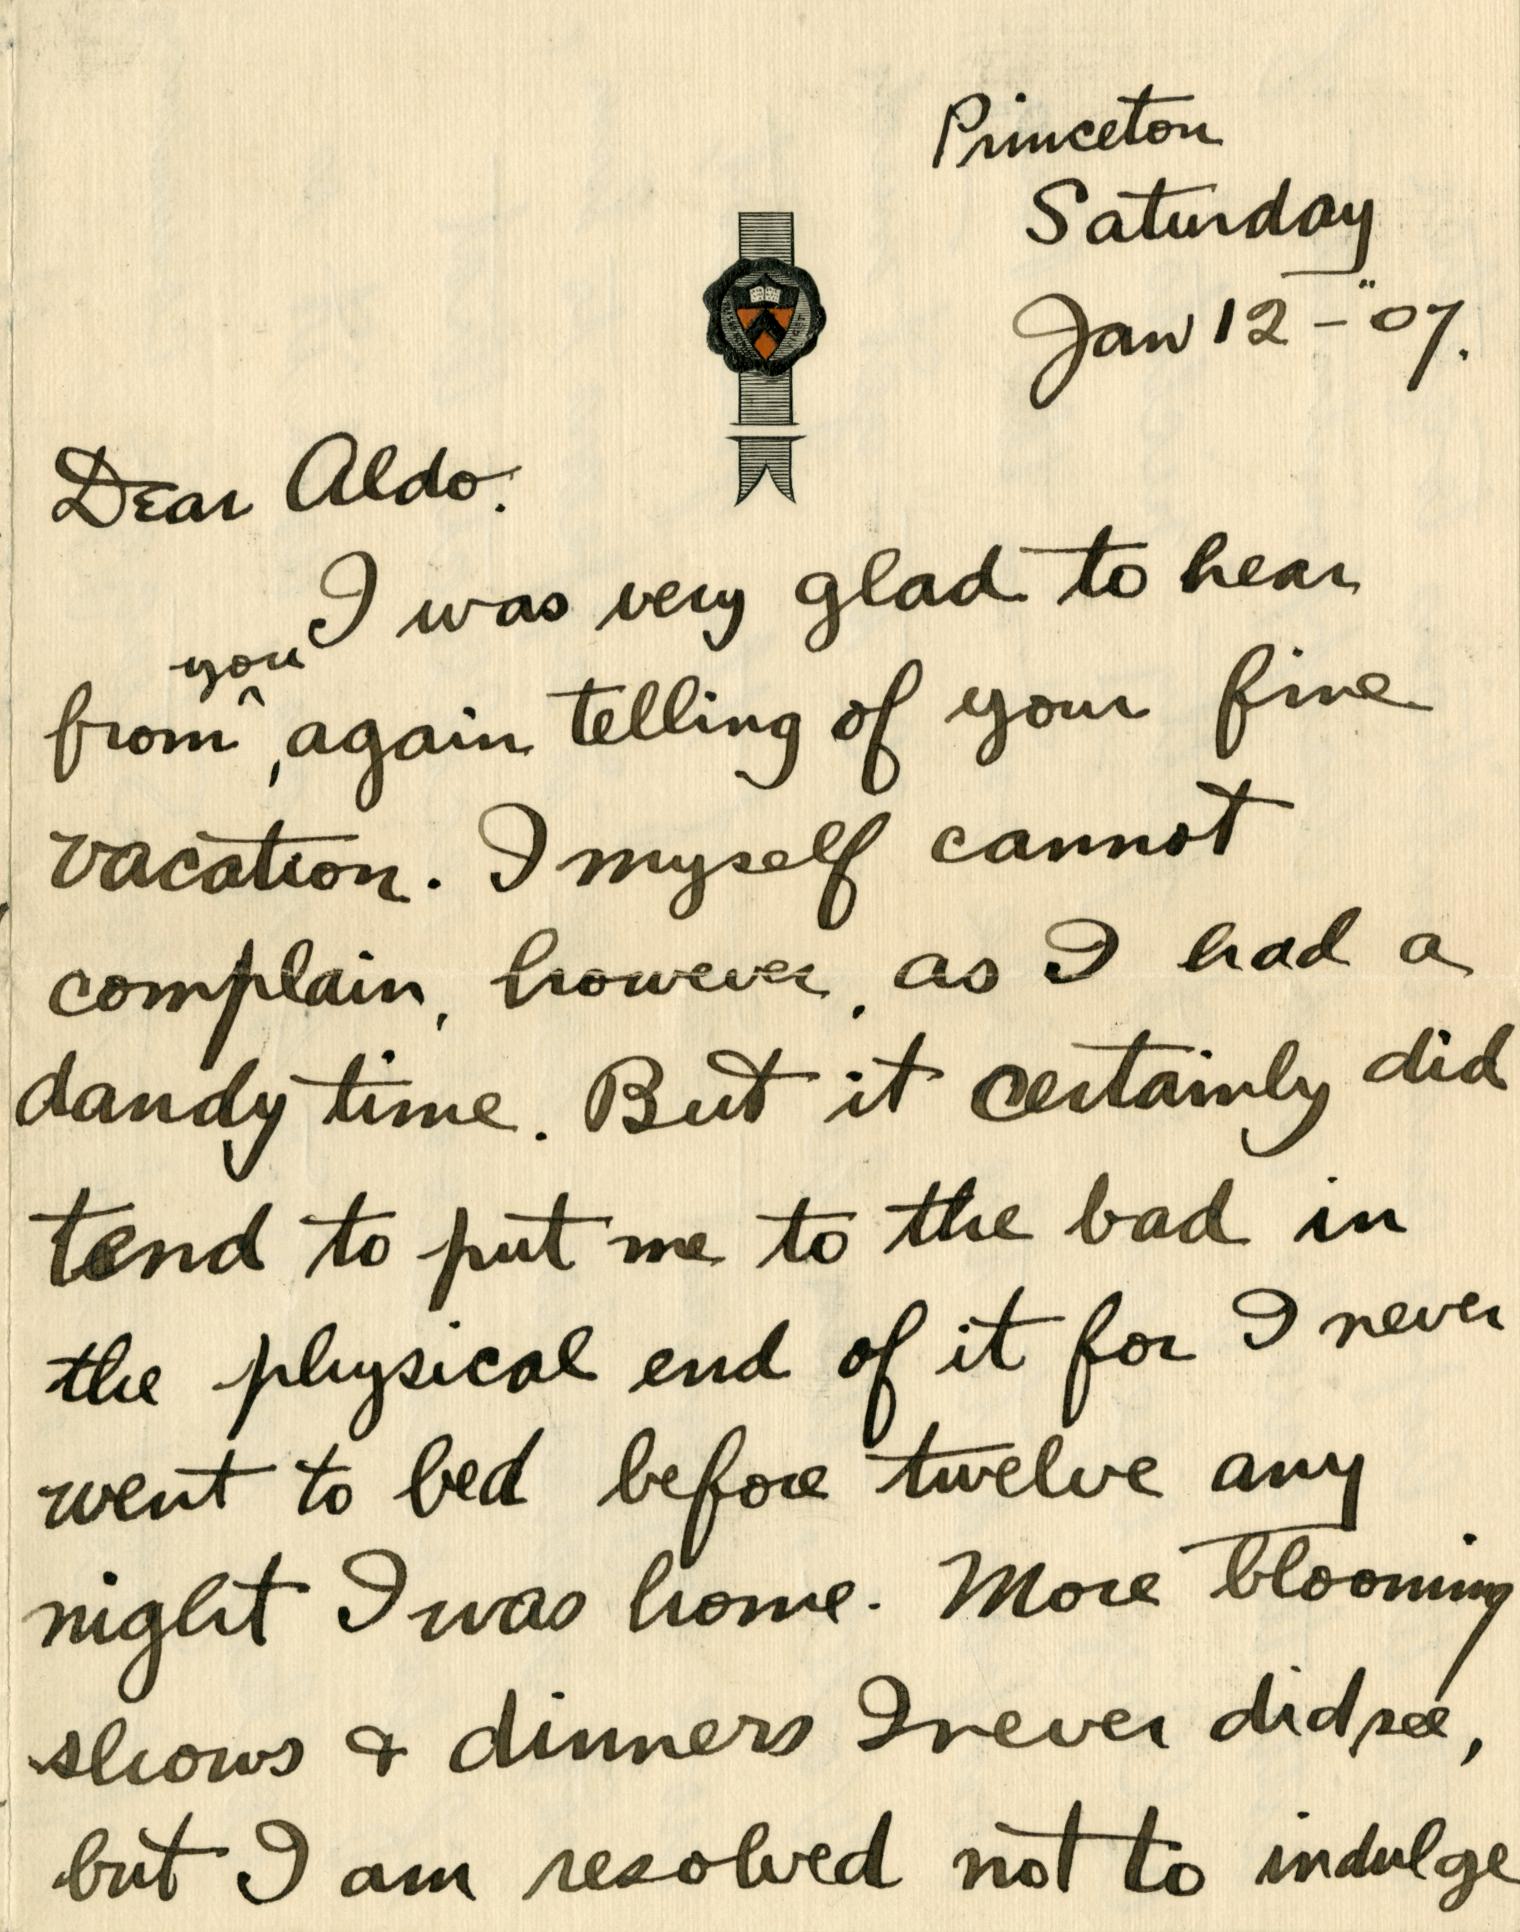 Princeton
Saturday
Jan 12 - "07.
Dear Aldo:
I was very glad to hear
from you, again telling of your fine
vacation. I myself cannot
complain, however, as I had a
dandy time. But it certainly did
tend to put me to the bad in
the physical end of it for I never
went to bed before twelve any
night I was home. More blooming
shows & dinners I never did see,
but I am resolved not to indulge